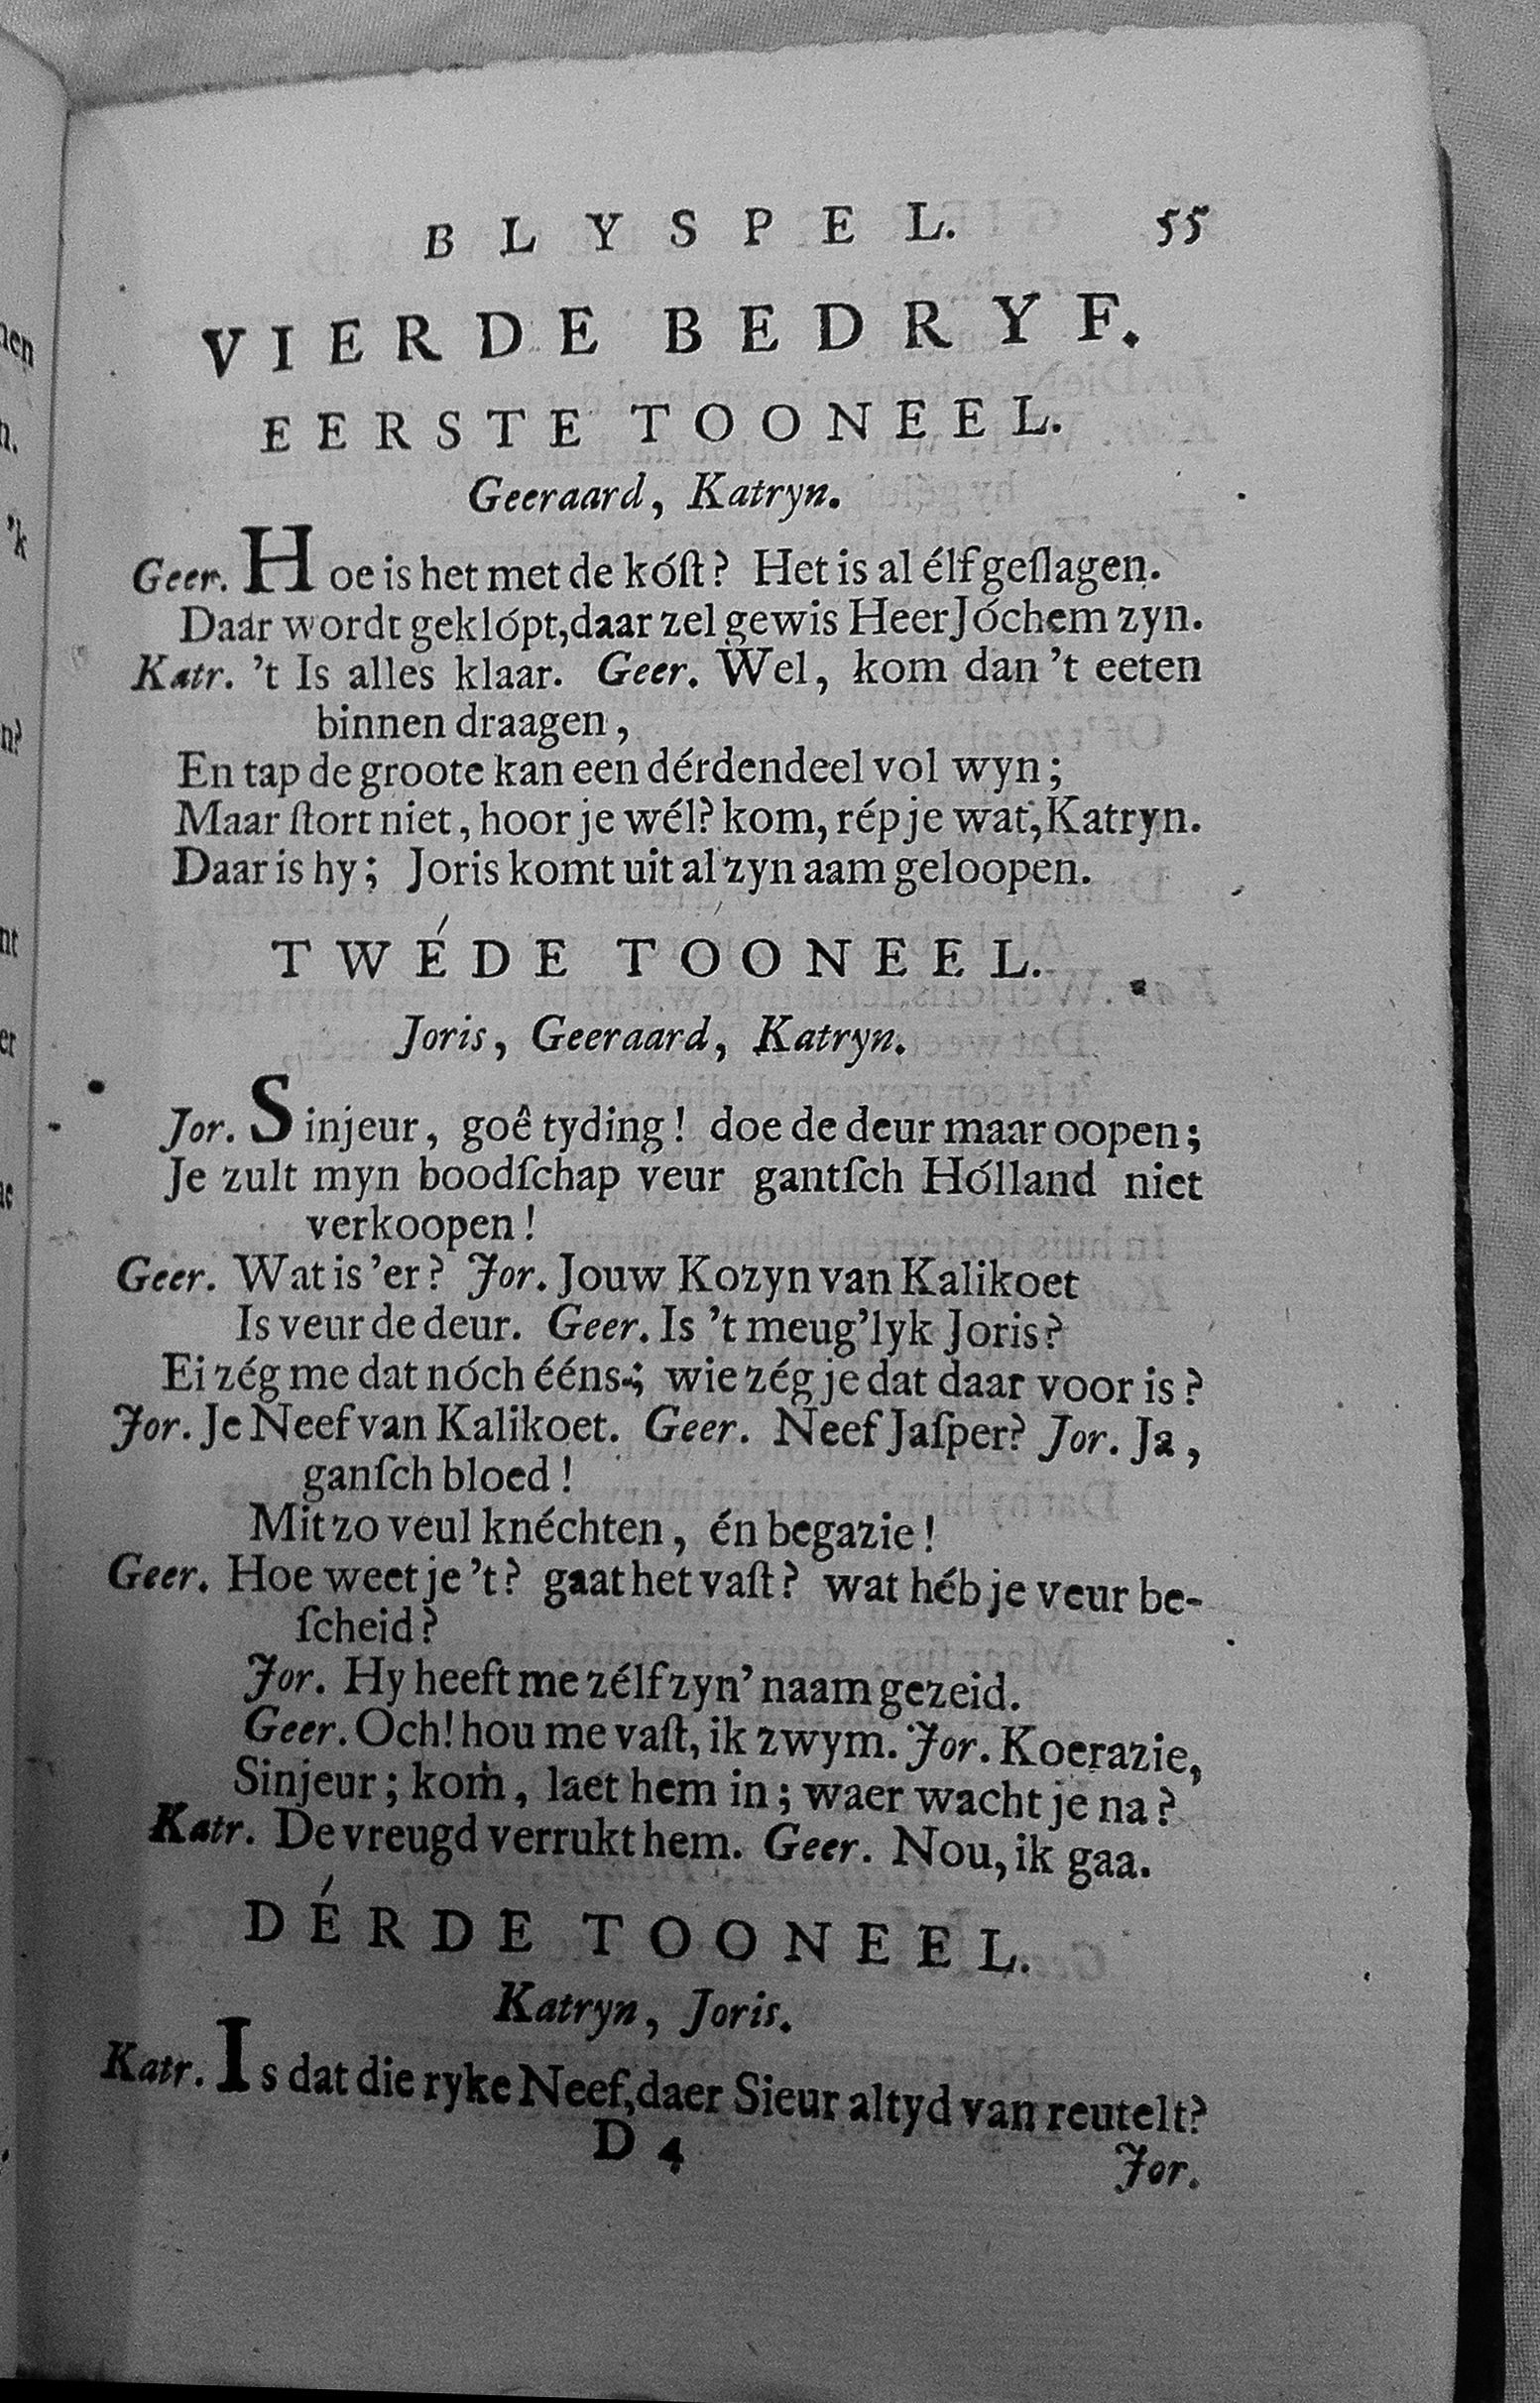 BLYSPEL. 55
VIERDE BEDRYF.
EERSTE TOONEEL.
Geeraard, Katryn.
Geer. Hoe is het met de kóſt? Het is al élf geſlagen.
Daar wordt geklópt, daar zel gewis Heer Jóchem zyn.
Katr. 't Is alles klaar. Geer. Wel, kom dan 't eeten
binnen draagen,
En tap de groote kan een dérdendeel vol wyn;
Maar ſtort niet, hoor je wél? kom, rép je wat, Katryn.
Daar is hy; Joris komt uit al zyn aam geloopen.
TWÉDE TOONEEL.
Joris, Geeraard, Katryn.
Jor. Sinjeur, goê tyding! doe de deur maar oopen;
Je zult myn boodſchap veur gantſch Hólland niet
verkoopen!
Geer. Wat is 'er? Jor. Jouw Kozyn van Kalikoet
Is veur de deur. Geer. Is 't meug'lyk Joris?
Ei zég me dat nóch ééns; wie zég je dat daar voor is?
Jor. Je Neef van Kalikoet. Geer. Neef Jaſper? Jor. Ja,
ganſch bloed!
Mit zo veul knéchten, én begazie!
Geer. Hoe weet je 't? gaat het vaſt? wat héb je veur be-
ſcheid?
Jor. Hy heeft me zélf zyn' naam gezeid.
Geer. Och! hou me vaſt, ik zwym. Jor. Koerazie,
Sinjeur; kom, laet hem in; waer wacht je na?
Katr. De vreugd verrukt hem. Geer. Nou, ik gaa.
DÉRDE TOONEEL.
Katryn, Joris.
Katr. Is dat die ryke Neef, daer Sieur altyd van reutelt?
D 4
Jor.